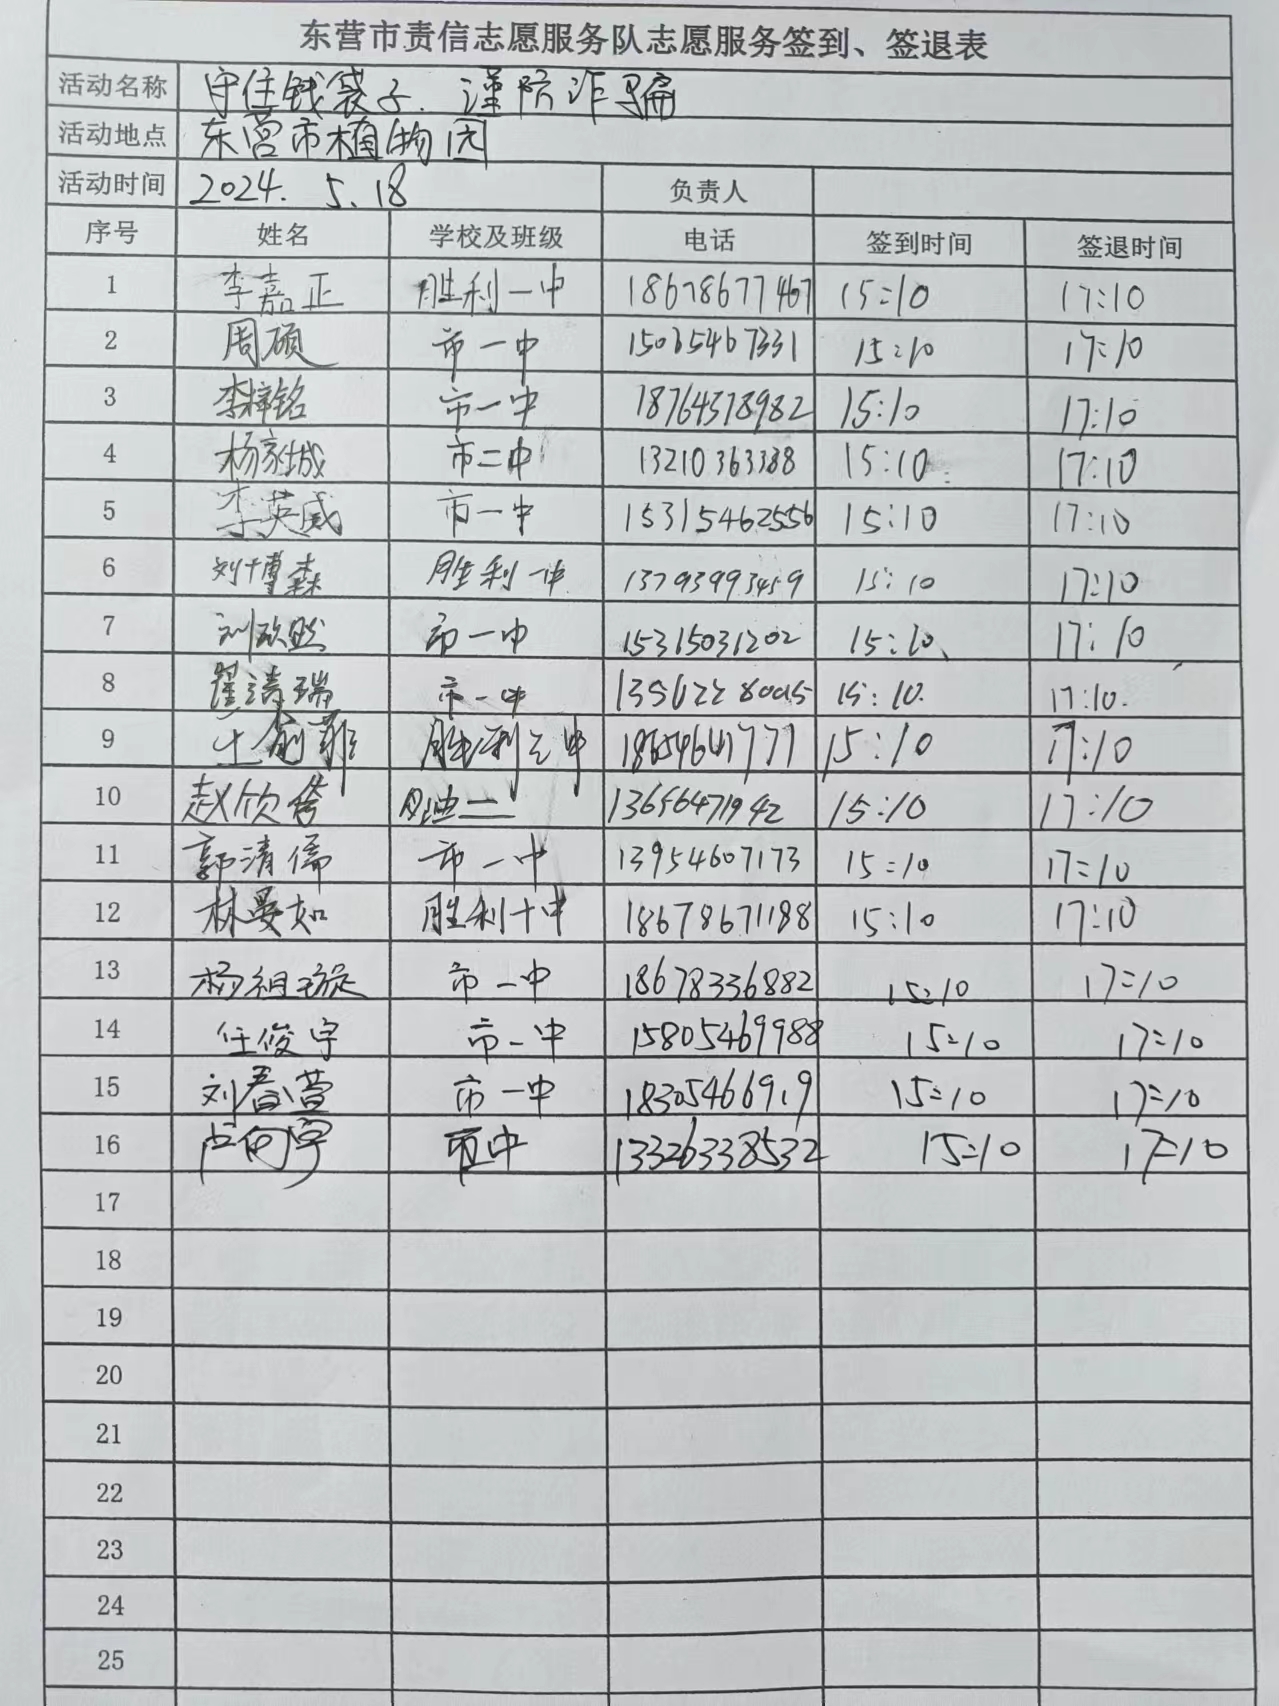 东营市责信志愿服务队志愿服务签到、签退表
活动名称 守住钱袋子、谨防诈骗
活动地点 东营市植物园
活动时间 2024.5.18 负责人
序号 姓名 学校及班级 电话 签到时间 签退时间
1 李嘉正 胜利一中 18678677467 15:10 17:10
2 周硕 市一中 15065467331 15:10 17:10
3 李梓铭 市一中 18764578982 15:10 17:10
4 杨家城 市二中 13210363388 15:10 17:10
5 李英威 市一中 15315462556 15:10 17:10
6 刘博森 胜利一中 13793993459 15:10 17:10
7 刘欣然 市一中 15315031202 15:10 17:10
8 翟清瑞 市一中 15:10 17:10
9 胜利三中 15:10 17:10
10 赵欣 13656471942 15:10 17:10
11 郭清儒 市一中 13954607173 15:10 17:10
12 林晏如 胜利十中 18678671188 15:10 17:10
13 杨祖璇 市一中 18678336882 15:10 17:10
14 任俊宇 市一中 15805469988 15:10 17:10
15 刘春萱 市一中 15:10 17:10
16 卢向宇 13326338532 15:10 17:10
17
18
19
20
21
22
23
24
25